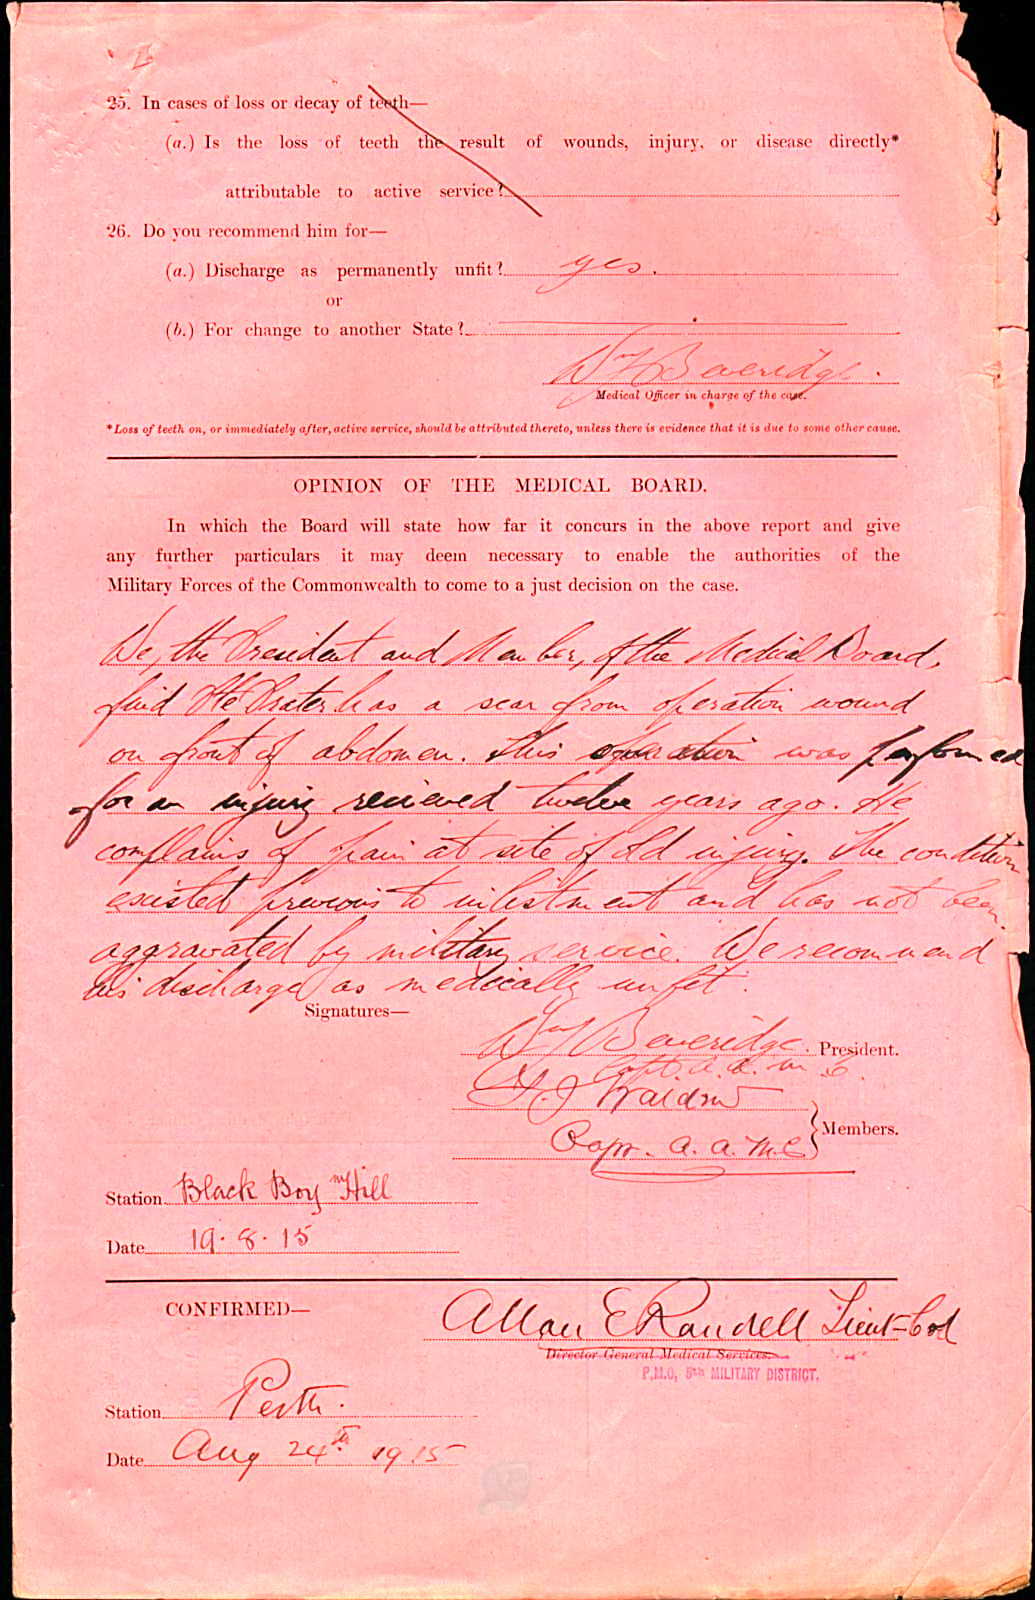 25. In cases of loss or decay of teeth—
(a.) Is the loss of teeth the result of wounds, injury, or disease directly*
attributable to active service?
26. Do you recommend him for—
(a.) Discharge as permanently unfit? yes.
or
(b.) For change to another State?
Wm Beveridge.
Medical Officer in charge of the case.
*Loss of teeth on, or immediately after, active service, should be attributed thereto, unless there is evidence that it is due to some other cause.
OPINION OF THE MEDICAL BOARD.
In which the Board will state how far it concurs in the above report and give
any further particulars it may deem necessary to enable the authorities of the
Military Forces of the Commonwealth to come to a just decision on the case.
We, the President and Member, of the Medical Board,
find Pte Prater has a scar from operation wound
on front of abdomen. This operation was performed
for an injury recieved twelve years ago. He
complains of pain at site of old injury. The condition
existed previous to enlistment and has not been
aggravated by military service. We recommend
his discharge as medically unfit.
Signatures—
Wm Beveridge. President.
Capt. A. A. M. C.
Members.
Capt. A. A. M. C.
Station Black Boy Hill
Date 19.8.15
CONFIRMED—
Allan E Randell Lieut-Col
Director General Medical Services.
P.M.O, 5th MILITARY DISTRICT.
Station Perth.
Date Aug 24th 1915